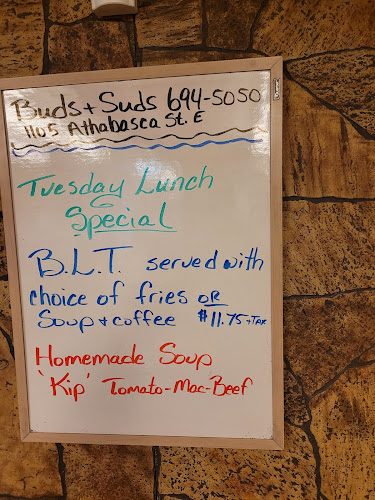 Buds + Suds 694-5050
1105 Athabasca St. E
Tuesday Lunch
Special
B.L.T. served with
choice of fries OR
Soup + coffee $11.75 + TAX
Homemade Soup
'Kip' Tomato-Mac-Beef